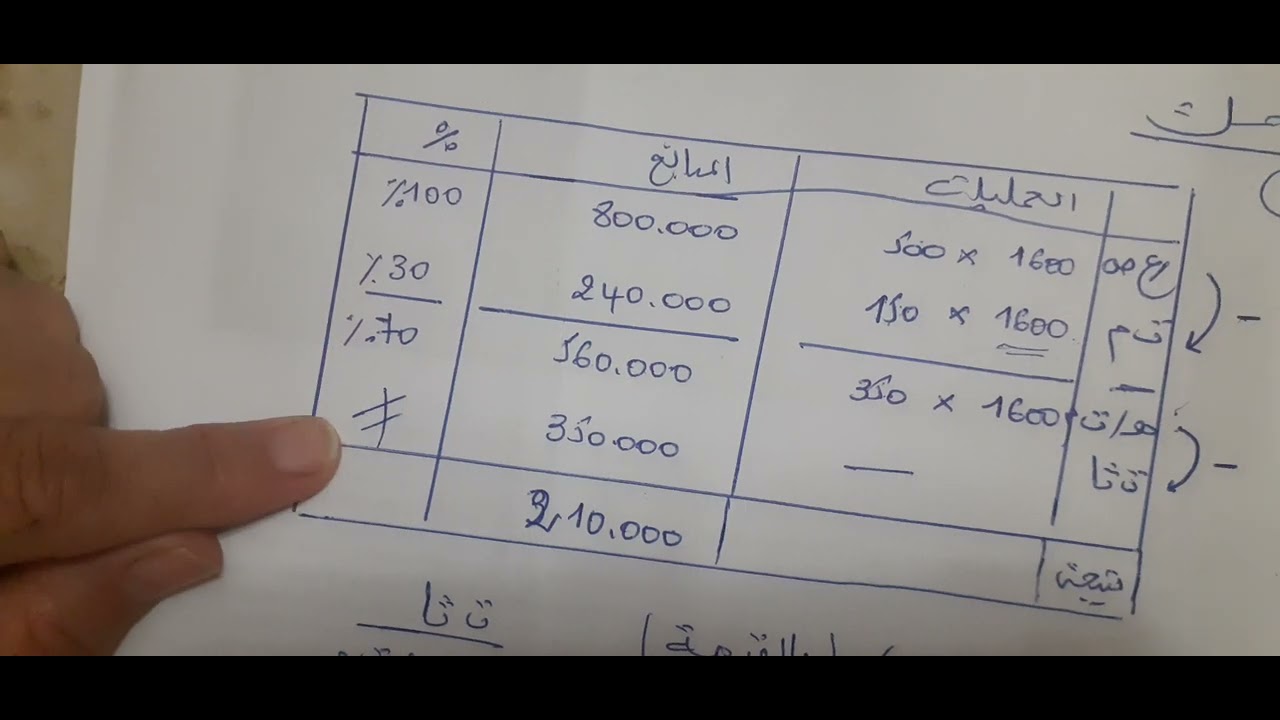 التحليلات المبالغ %
رع ص 500 × 1600 800.000 %100
ت م 150 × 1600 240.000 %30
هـ/ت 350 × 1600 560.000 %70
ت ثا — 350.000
نتيجة 210.000
ت ثا